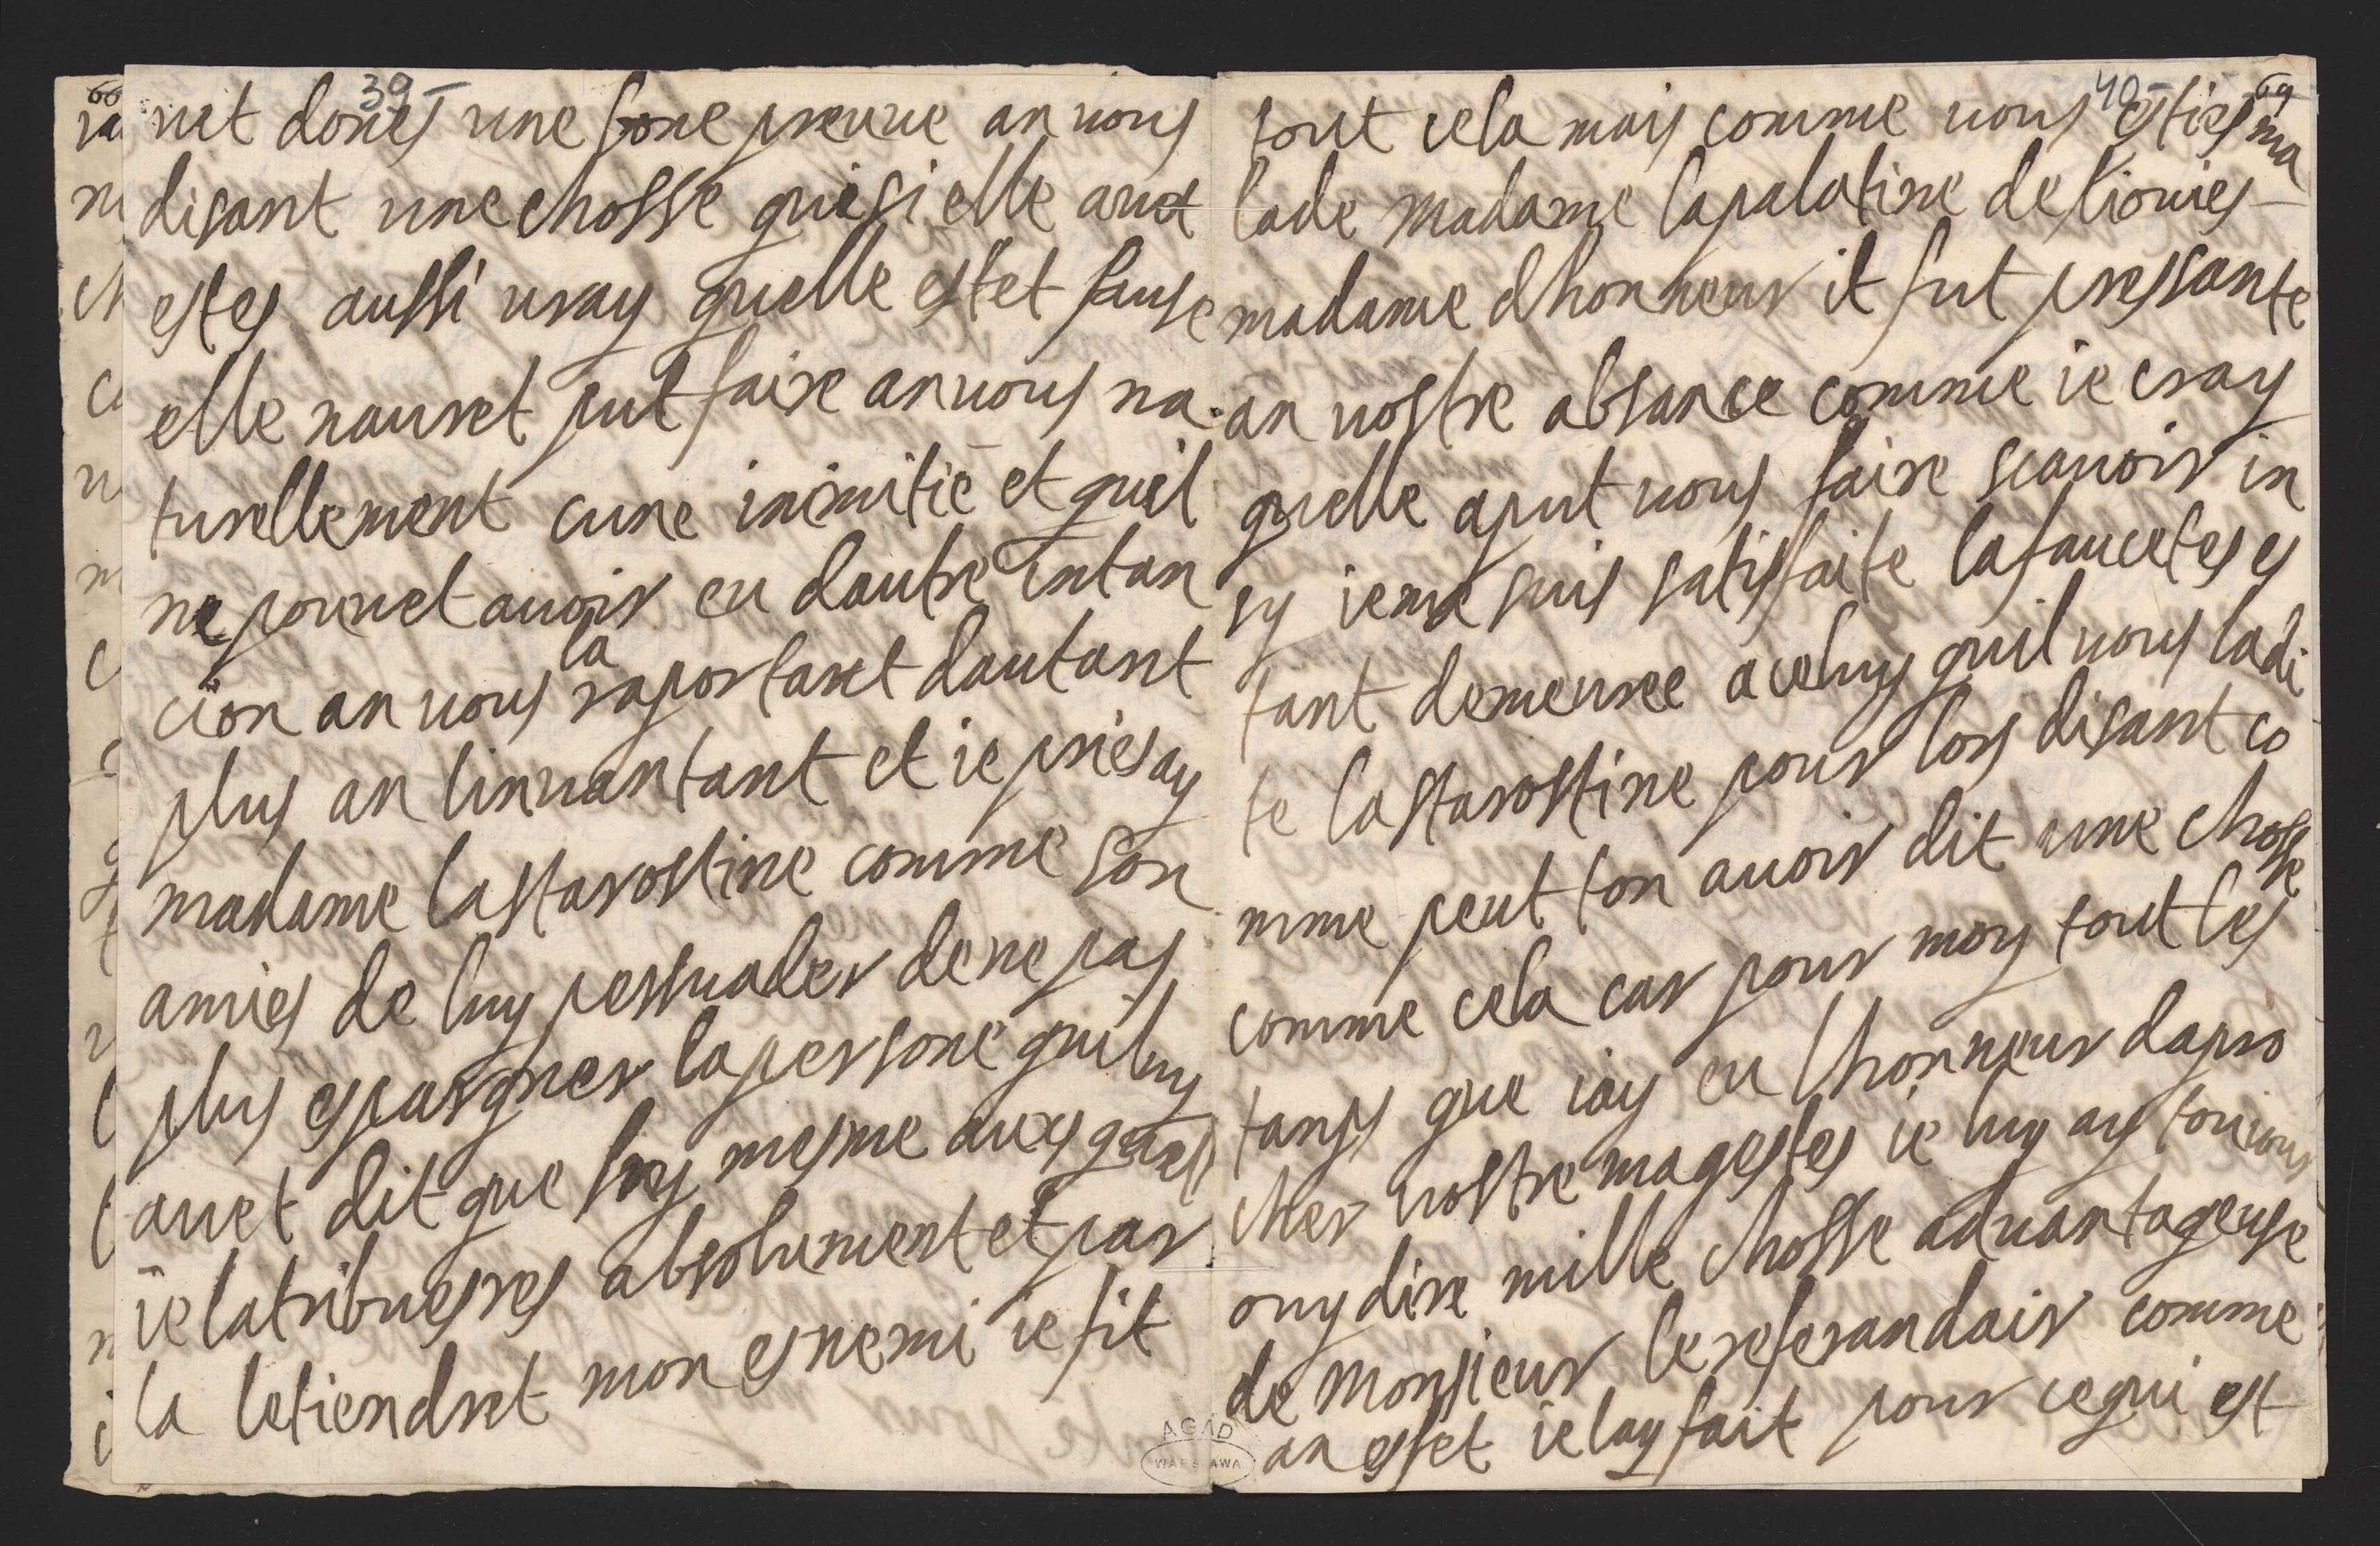 39-
nit donés une bone preuue an uous
disant une chosse quiesi elle auet
estes aussi uray quelle estet fause
elle nauret put faire an uous na-
turellement cune inimitié et quil
ne pouuet auoir eu dautre intan
cion an uous la raportant dautant
plus an linuantant et ie priesay
madame lastarostine comme son
amies de luy persuader de ne pas
plus espargner la persone qui luy
auet dit que luy mesme aueq
ie latribueres absolument et par
la letiendret mon esnemi ie fit
40- 69
tout cela mais comme uous esties ma
lade madame lapalatine de
madame dhonneur it fut pressante
an uostre absance comme ie cray
quelle aput uous faire scauoir in
sy ieme suis satisfaite lafaucetes es
tant demeuree aceluy quil uous ladi
te lastarostine pour lors disant co
mme peut ton auoir dit une chosse
comme cela car pour moy tout les
tamps que iay eu lhonneur dapro
cher uostre magestes ie luy ay touiour
ouy dire mille chosse aduantageuse
de monsieur lereferandair comme
an effet ielay fait pour cequi est
AGAD
WARSZAWA